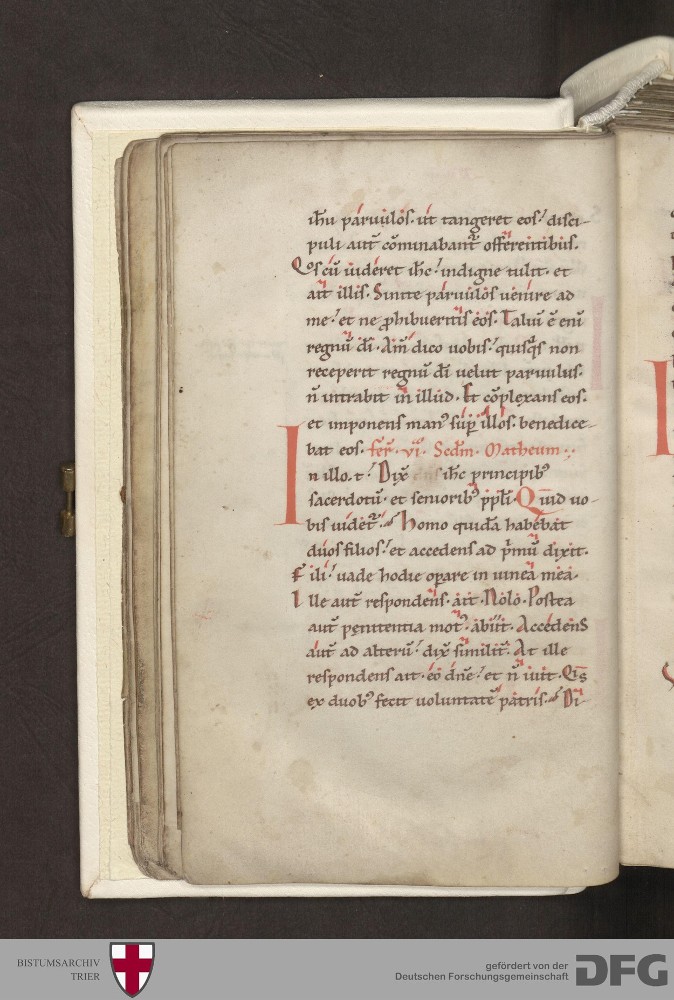 ihu paruulos. ut tangeret eos. disci-
puli aut cōminabant offerentibus.
Qos cū uideret ihc. indigne tulit. et
ait illis. Sinite paruulos uenire ad
me. et ne ꝓhibueritis eos. Taliū ē enī
regnū dī. Am̄ dico uobis. quisq̄s non
receperit regnū dī velut paruulus.
n̄ intrabit in illud. Et cōplexans eos.
et imponens man᷒ sup illos. benedice-
bat eos. fer̄. vi. Scdm. Matheum.
In illo. t. Dix̄ ihc principib᷒
sacerdotū. et seniorib᷒ pplī. Quid uo-
bis uidet. Homo quidā habebat
duos filios. et accedens ad p̄mū dixit.
Fili. uade hodie oꝑare in uinea mea.
Ille aut respondens. ait. Nolo. Postea
aut penitentia mot᷒. abiit. Accedens
aut ad alterū. dix̄ similit. At ille
respondens ait. eo dn̄e. et n̄ iuit. Q̄is
ex duob᷒ fecit uoluntatē patris. Di-
BISTUMSARCHIV
TRIER
gefördert von der
Deutschen Forschungsgemeinschaft
DFG